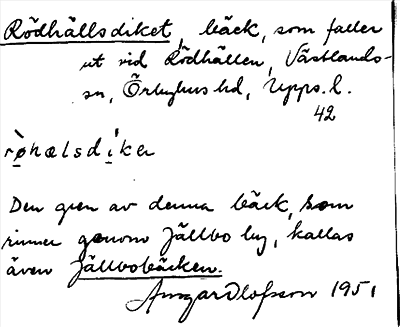 Rödhällsdiket, bäck, som faller
ut vid Rödhällen, Västlands-
sn, Örbyhus hd, Upps. l.
42
rø̀hælsdíkeʀ
Den gren av denna bäck, som
rinner genom Jällbo by, kallas
även Jällbobäcken.
Olofsson 1951